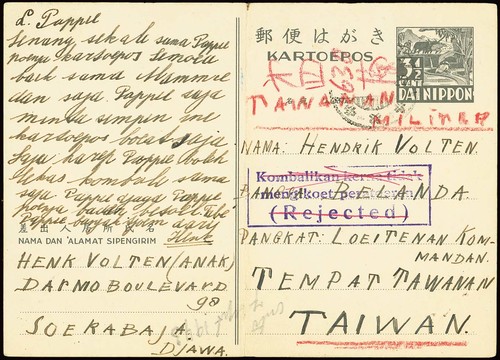 L. Pappie
Senang sekali sama Pappie
poenja kartoepos. Semoea
baik sama Mammie
dan saja. Pappie saja
minta simpen ine
kartoepos boeat saja
Saja harep Pappie boleh
lekas kombali sama
saja. Pappie djaga Pappie
poenja badan
Pappie dari
Henk
差出人居所氏名
NAMA DAN 'ALAMAT SIPENGIRIM
HENK VOLTEN (ANAK)
DARMO BOULEVARD
98
SOERABAJA
DJAWA.
郵便はがき
KARTOEPOS
3½
CENT
DAI NIPPON
TAWANAN
MILITER
NAMA: HENDRIK VOLTEN.
Kombalikan kerna tida
mengikoet peratoeran
(Rejected)
BANGSA: BELANDA
PANGKAT: LOEITENAN KOM-
MANDAN.
TEMPAT TAWANAN
TAIWAN.